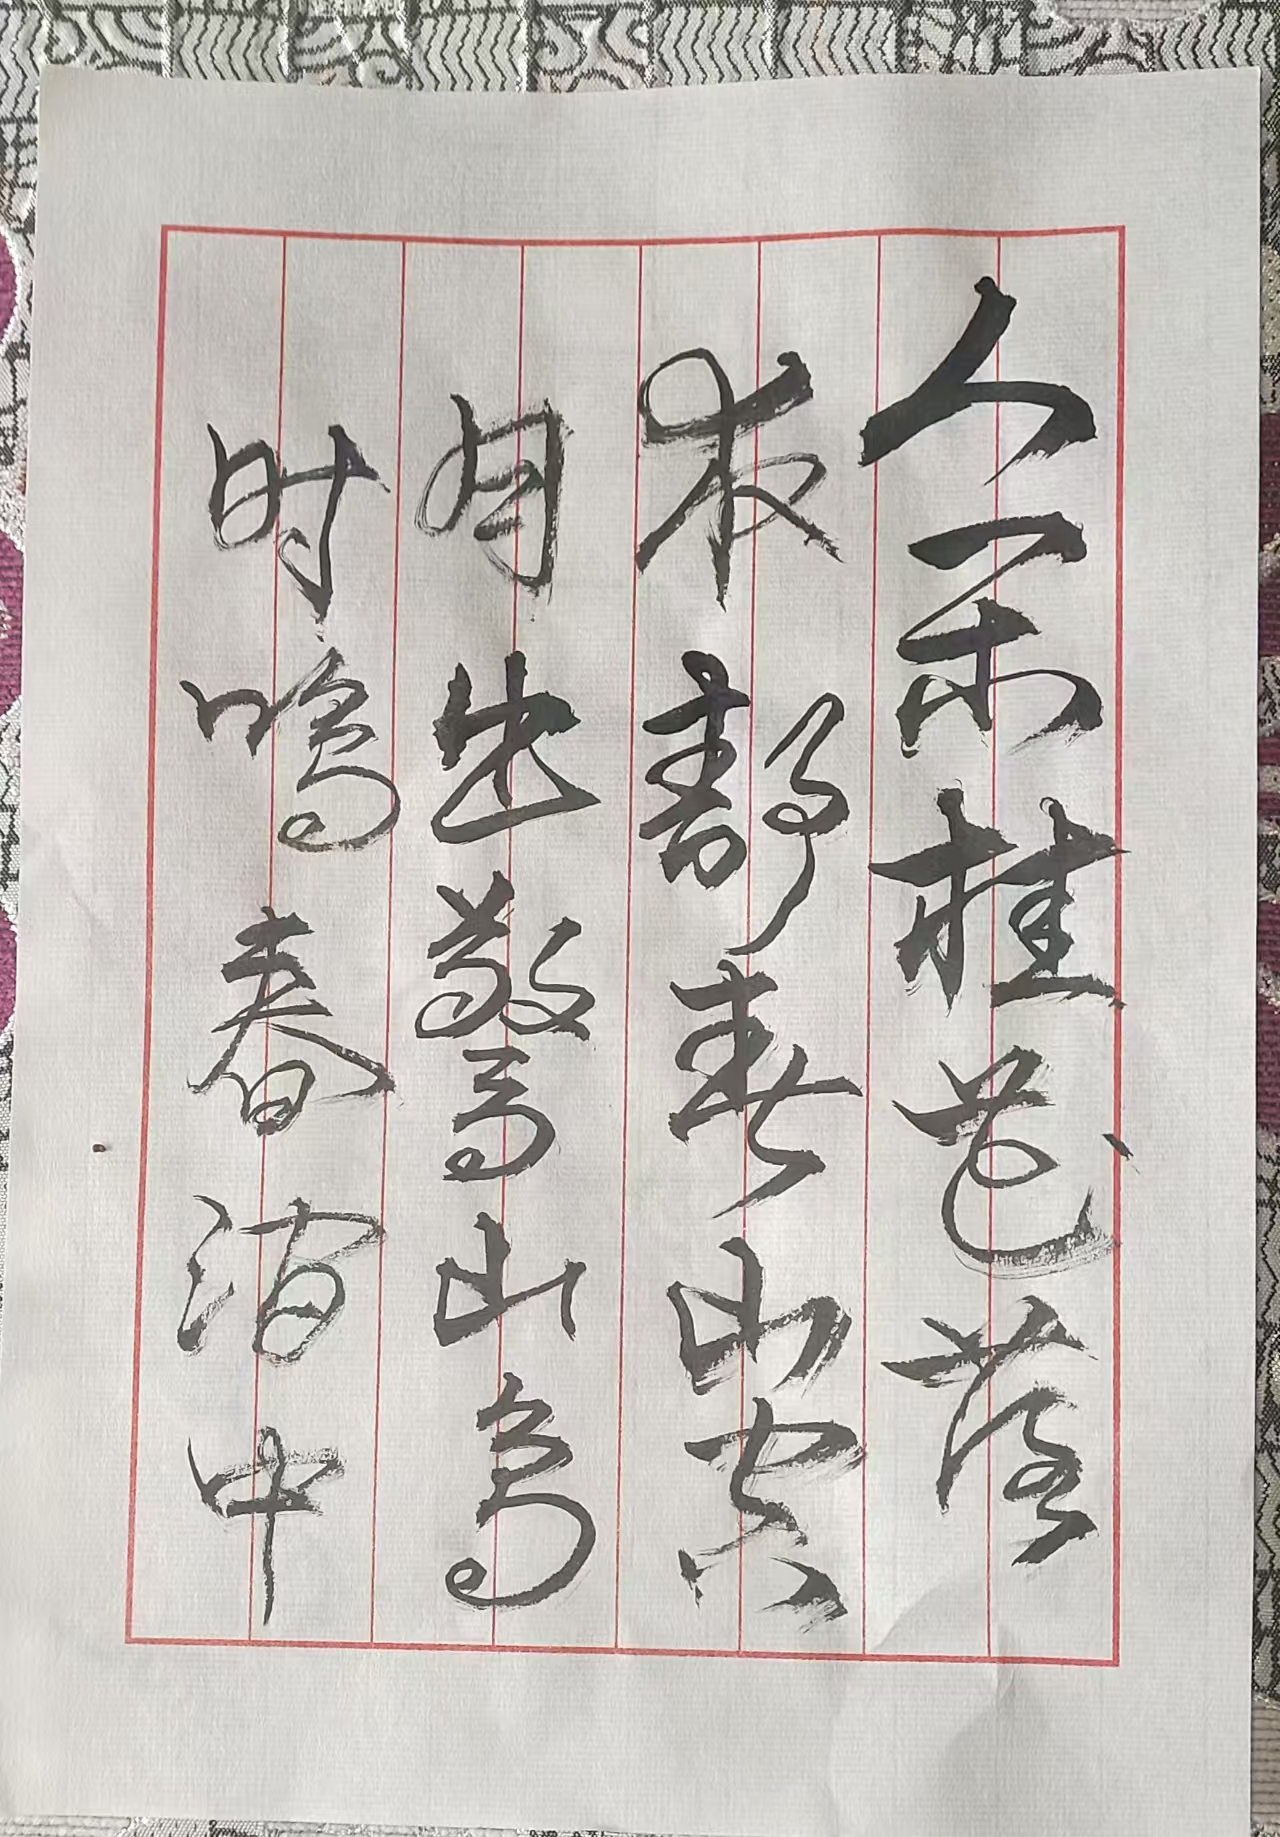 人闲桂花落
夜静春山空
月出驚山鸟
时鸣春涧中